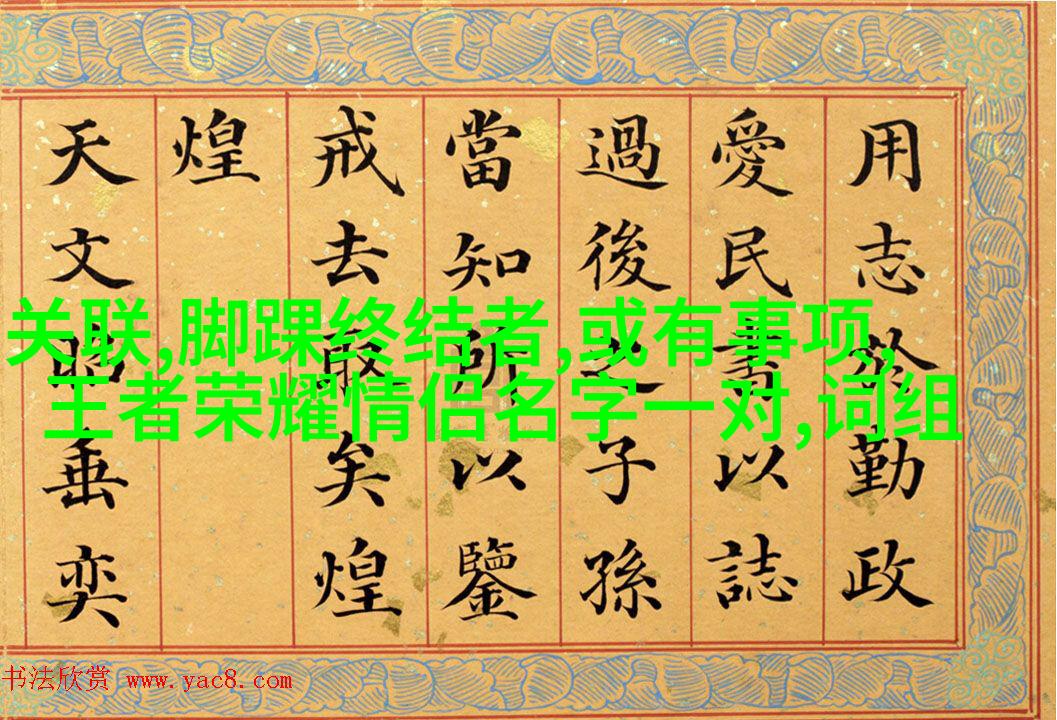 用志於勤政
愛民書以誌
過後之子孫
當知所以鑒
戒去取矣煌
煌
天文昭垂奕
关联,脚踝终结者,或有事项,
王者荣耀情侣名字一对,词组
书法欣赏 www.yac8.com